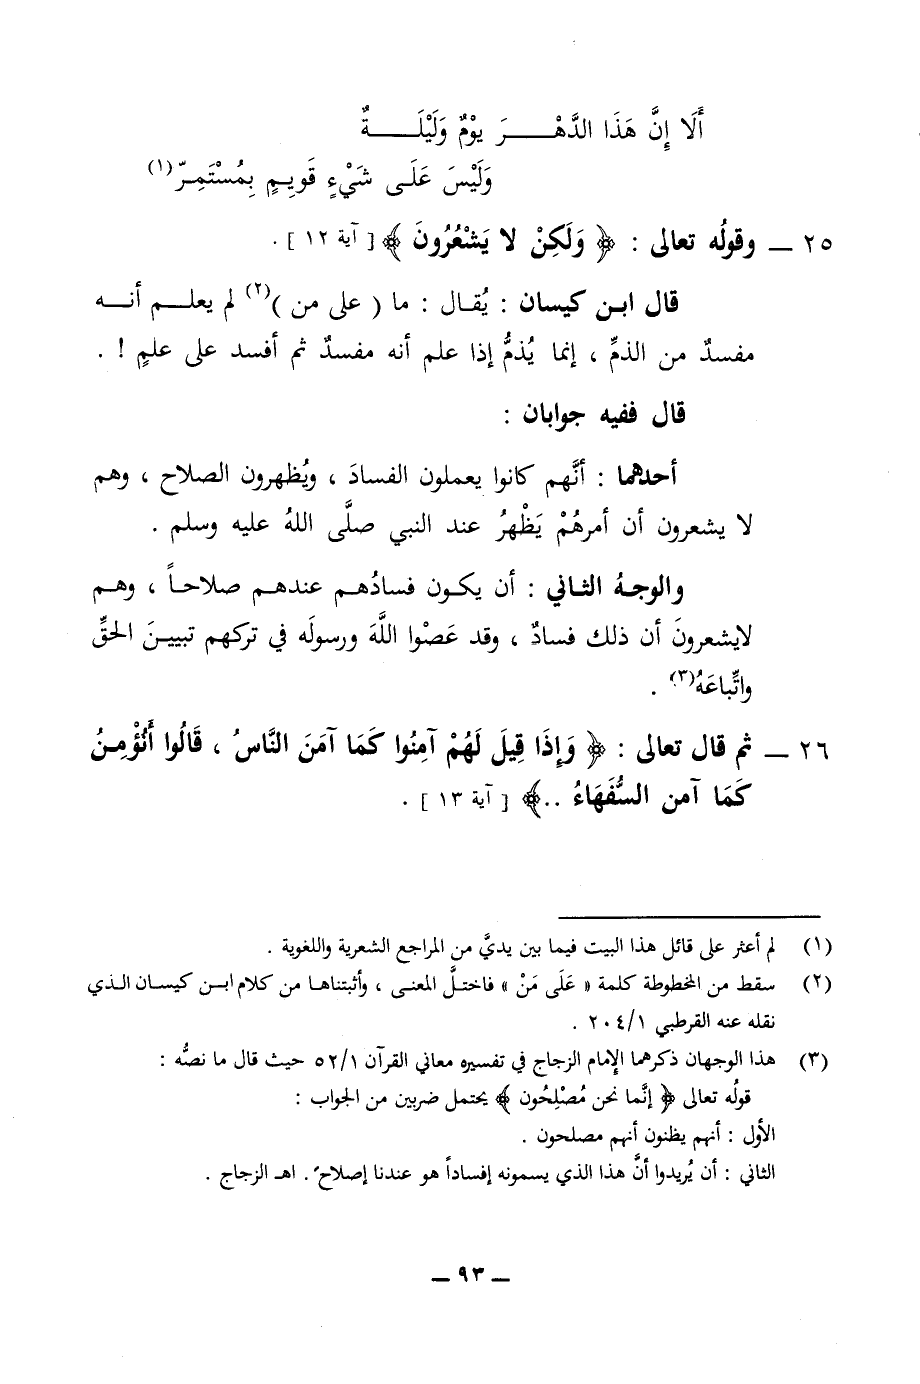 أَلَا إِنَّ هَذَا الدَّهْـــــرَ يوْمٌ وَلَيْلَـــــةٌ
وَلَيْسَ عَلَـى شَيْءٍ قَوِيـمٍ بِمُسْتَمِـرّ(١)
٢٥ ــ وقولُه تعالى : ﴿ وَلَكِنْ لا يَشْعُرُونَ ﴾ [ آية ١٢ ] .
قال ابـن كيسان : يُقـال : ما ( على من )(٢) لم يعلـم أنـه
مفسدٌ من الذمِّ ، إنما يُذمُّ إذا علم أنه مفسدٌ ثم أفسد على علمٍ ! .
قال ففيه جوابان :
أحدهما : أنَّهم كانوا يعملون الفسادَ ، ويُظهرون الصلاح ، وهم
لا يشعرون أن أمرهُمْ يَظْهرُ عند النبي صلَّى اللهُ عليه وسلم .
والوجـهُ الثاني : أن يكـون فسادُهـم عندهـم صلاحـاً ، وهـم
لايشعرونَ أن ذلك فسادٌ ، وقد عَصَوْا اللَّهَ ورسولَه في تركهم تبيينَ الحقِّ
واتِّباعَهُ(٣) .
٢٦ ــ ثم قال تعالى : ﴿ وَإِذَا قِيلَ لَهُمْ آمِنُوا كَمَا آمَنَ النَّاسُ ، قَالُوا أَنُؤْمِنُ
كَمَا آمن السُّفَهَاءُ ..﴾ [ آية ١٣ ] .
(١) لم أعثر على قائل هذا البيت فيما بين يديَّ من المراجع الشعرية واللغوية .
(٢) سقط من المخطوطة كلمة « عَلَى مَنْ » فاختلَّ المعنـى ، وأثبتناهـا من كلام ابـن كيسـان الـذي
نقله عنه القرطبي ٢٠٤/١ .
(٣) هذا الوجهان ذكرهما الإمام الزجاج في تفسيره معاني القرآن ٥٢/١ حيث قال ما نصُّه :
قولُه تعالى ﴿ إنَّما نحن مُصْلِحُون ﴾ يحتمل ضربين من الجواب :
الأول : أنهم يظنون أنهم مصلحون .
الثاني : أن يُريدوا أنَّ هذا الذي يسمونه إفساداً هو عندنا إصلاحٌ . اهـ الزجاج .
ــ ٩٣ ــ